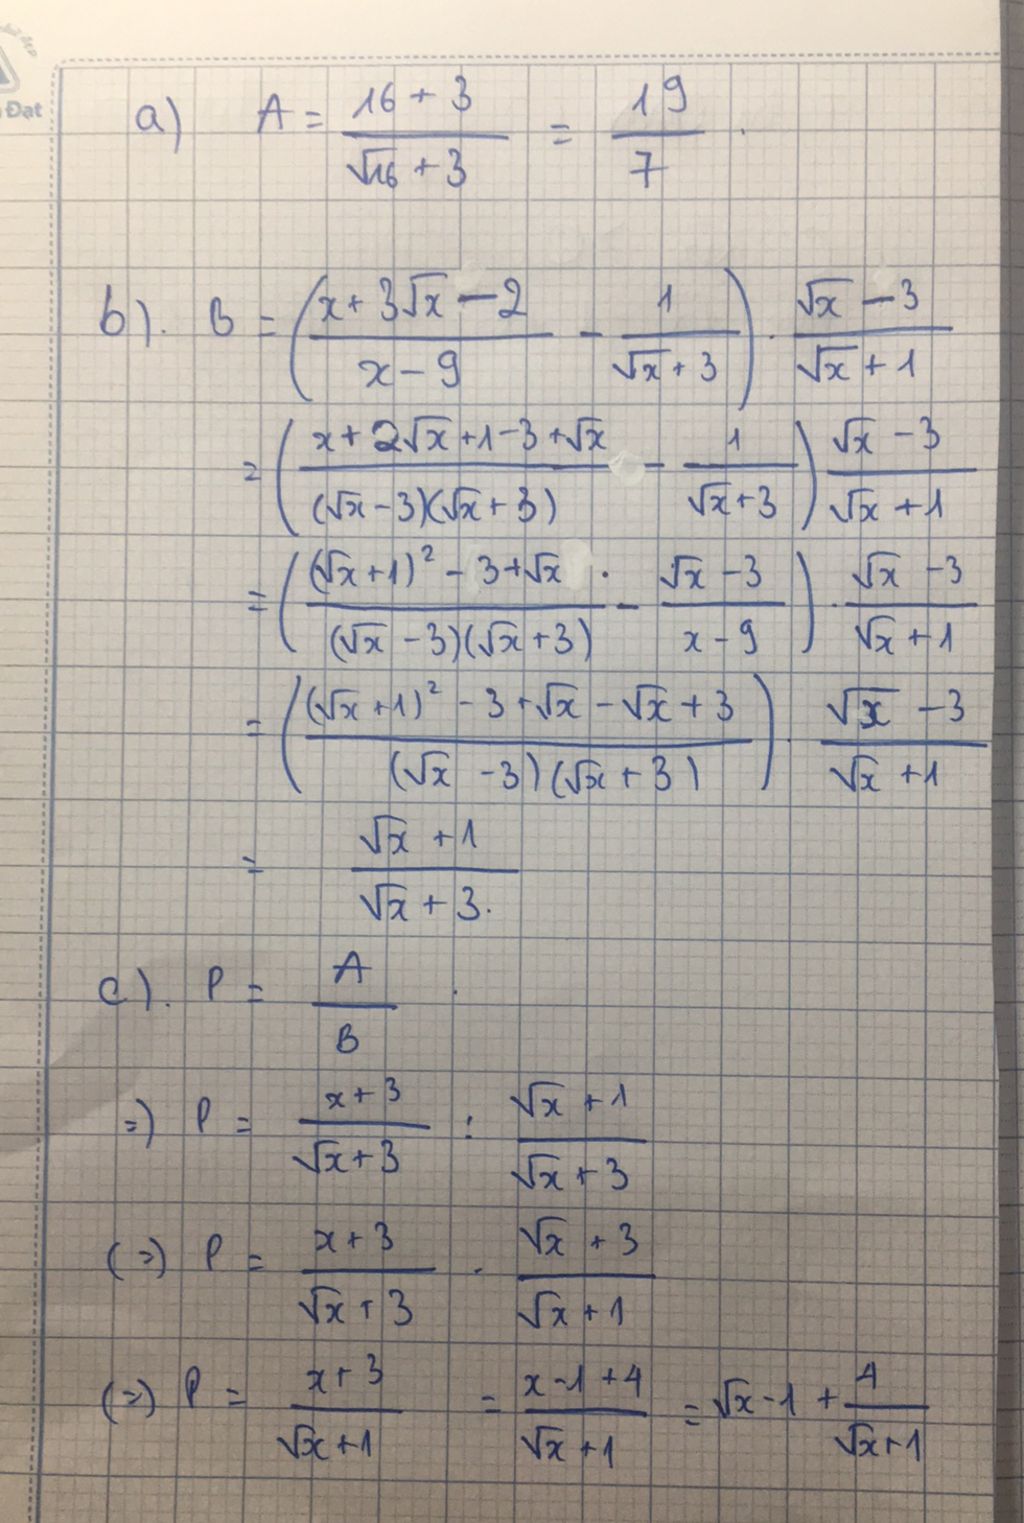 Đạt
a) A = (16 + 3)/(√16 + 3) = 19/7 .
b). B = ((x + 3√x - 2)/(x - 9) - 1/(√x + 3)) . (√x - 3)/(√x + 1)
= ((x + 2√x + 1 - 3 + √x)/((√x - 3)(√x + 3)) - 1/(√x + 3)) (√x - 3)/(√x + 1)
= (((√x + 1)² - 3 + √x)/((√x - 3)(√x + 3)) - (√x - 3)/(x - 9)) . (√x - 3)/(√x + 1)
= (((√x + 1)² - 3 + √x - √x + 3)/((√x - 3)(√x + 3))) . (√x - 3)/(√x + 1)
= (√x + 1)/(√x + 3).
c). P = A/B
=) P = (x + 3)/(√x + 3) : (√x + 1)/(√x + 3)
(=) P = (x + 3)/(√x + 3) . (√x + 3)/(√x + 1)
(=) P = (x + 3)/(√x + 1) = (x - 1 + 4)/(√x + 1) = √x - 1 + 4/(√x + 1)